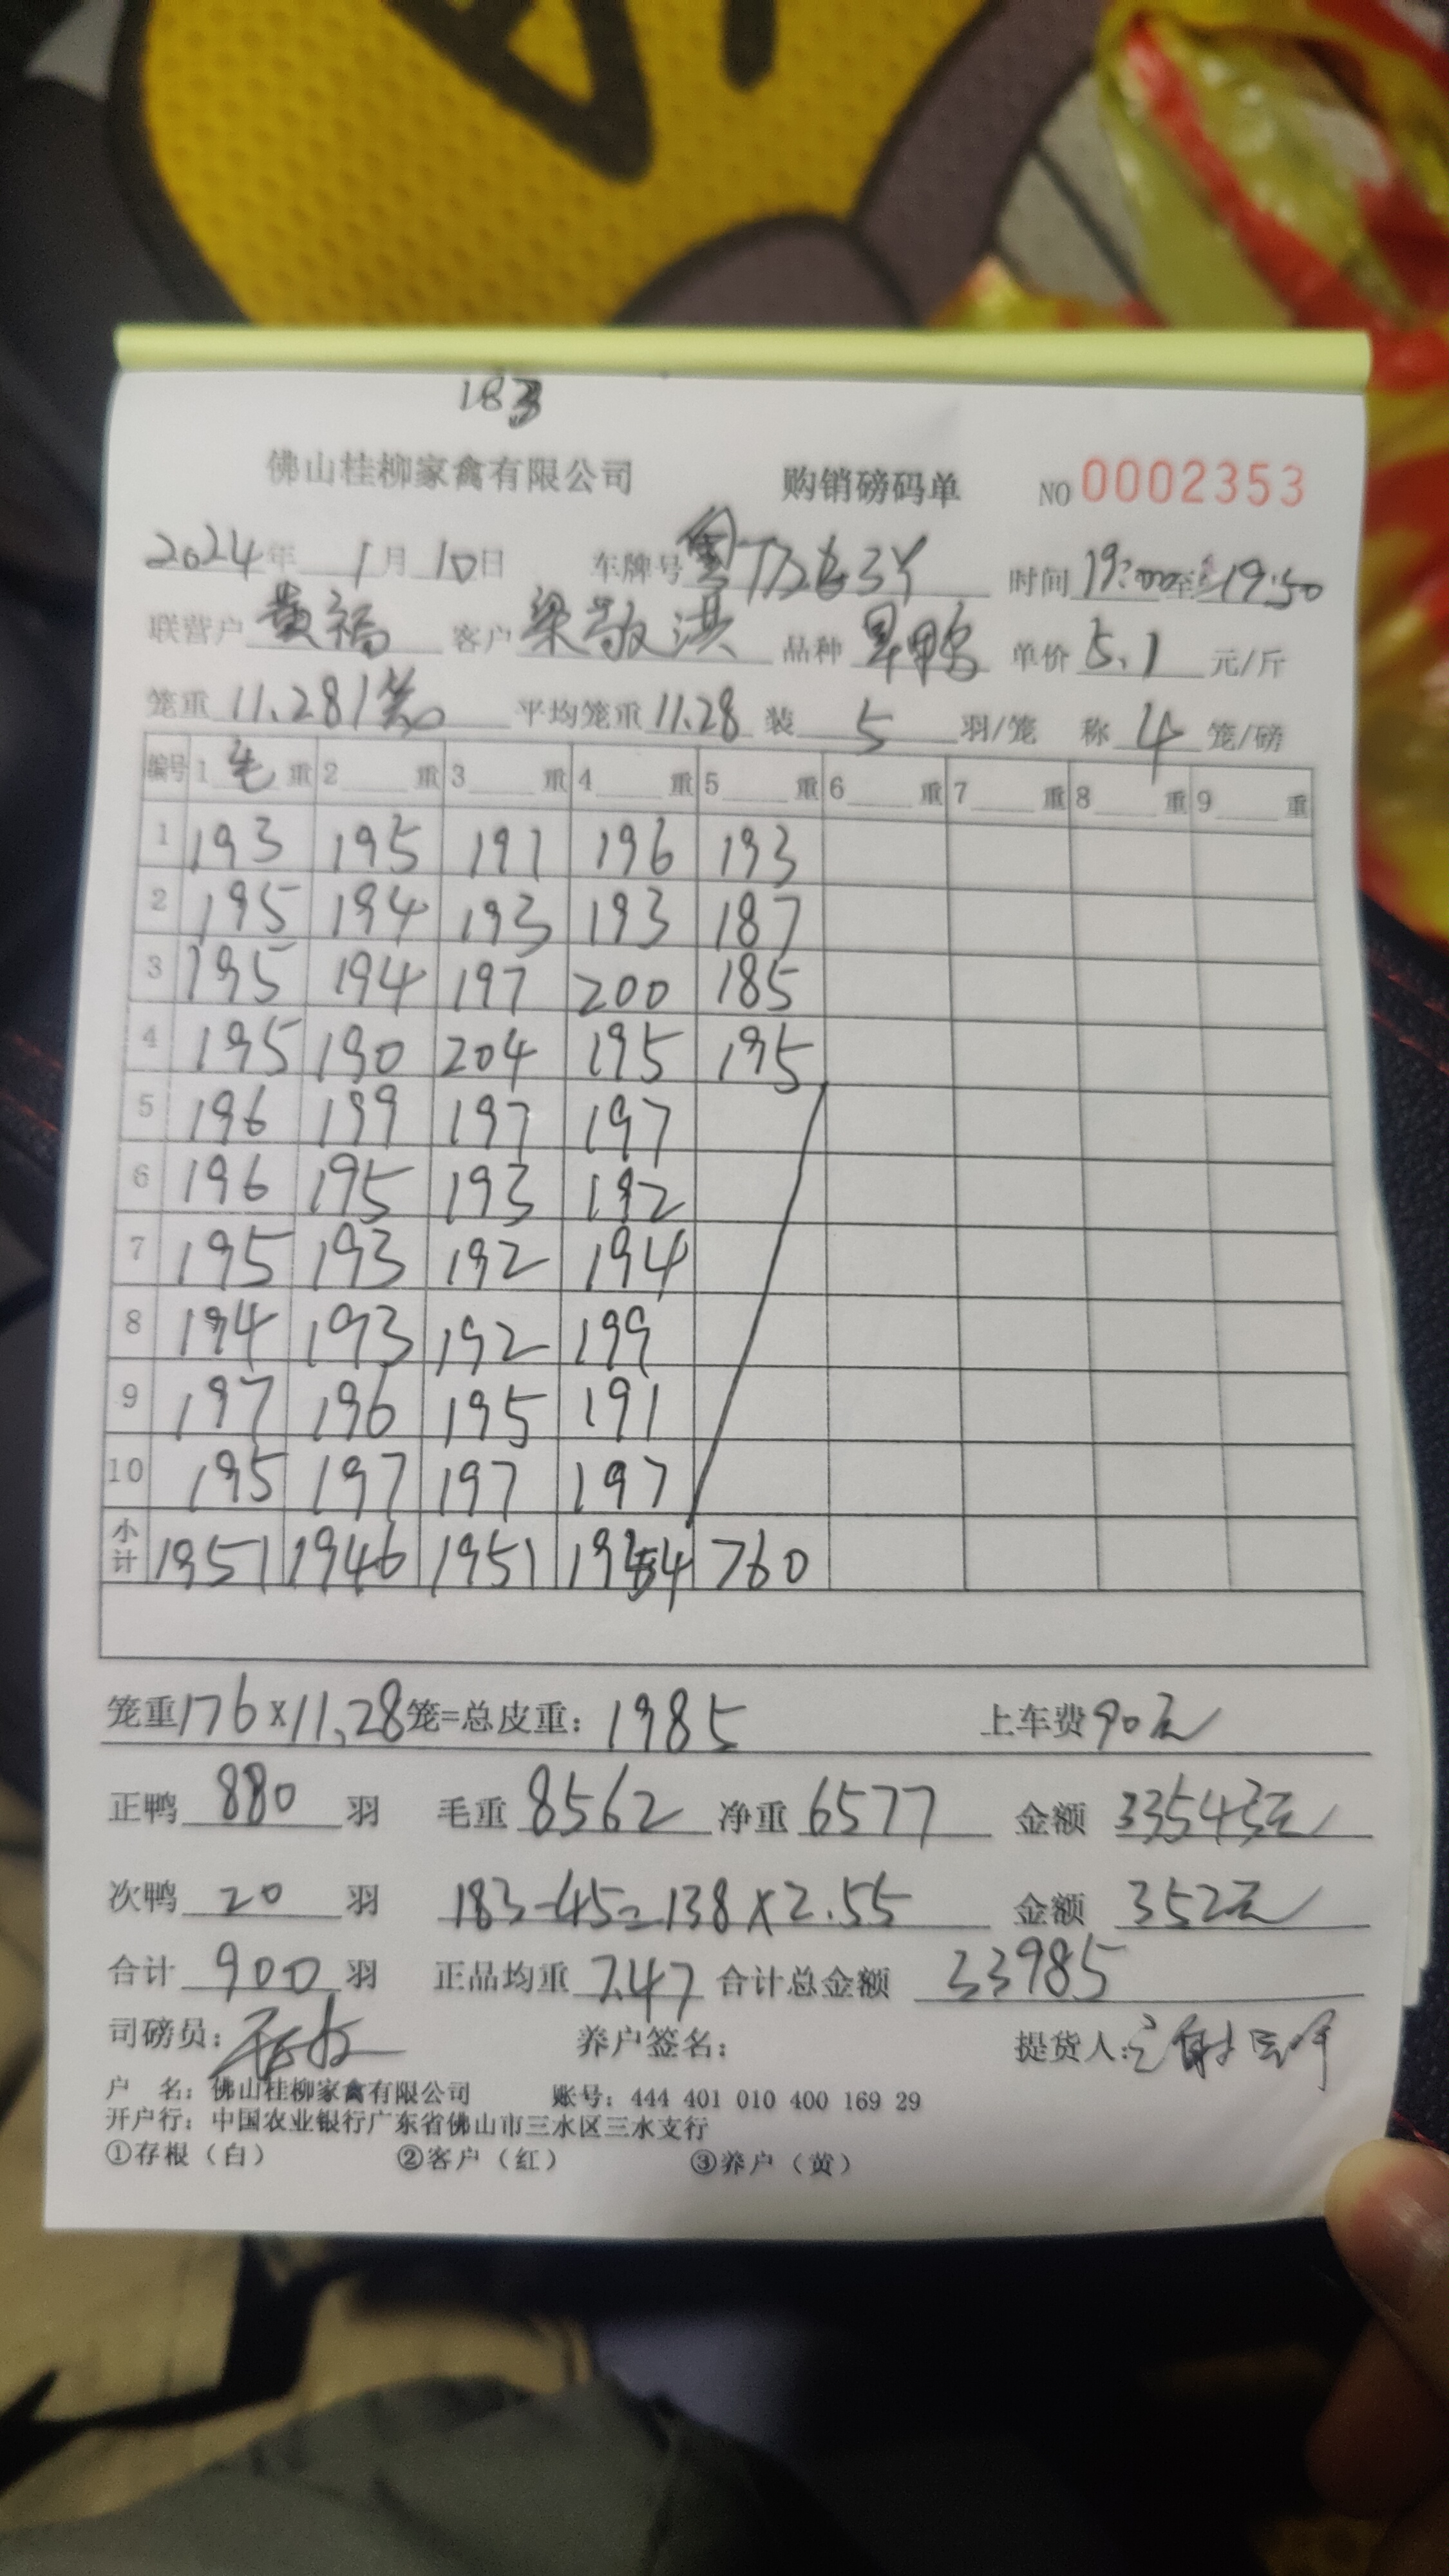 183
佛山桂柳家禽有限公司 购销磅码单 NO 0002353
2024年 1月 10日 车牌号 时间 19:00至 19:50
联营户 黄福 客户 梁敬洪 品种 单价 5.1 元/斤
笼重 11.28/笼 平均笼重 11.28 装 5 羽/笼 称 4 笼/磅
编号 1 毛 重 2 重 3 重 4 重 5 重 6 重 7 重 8 重 9 重
1 193 195 191 196 193
2 195 194 193 193 187
3 195 194 197 200 185
4 195 190 204 195 195
5 196 199 197 197
6 196 195 193 192
7 195 193 192 194
8 194 193 192 199
9 197 196 195 191
10 195 197 197 197
小计 1951 1946 1951 1954 760
笼重 176×11.28 笼=总皮重: 1985 上车费 90元
正鸭 880 羽 毛重 8562 净重 6577 金额 33543元
次鸭 20 羽 183-45=138×2.55 金额 352元
合计 900 羽 正品均重 7.47 合计总金额 33985
司磅员: 养户签名: 提货人:
户 名: 佛山桂柳家禽有限公司 账号: 444 401 010 400 169 29
开户行: 中国农业银行广东省佛山市三水区三水支行
①存根(白) ②客户(红) ③养户(黄)